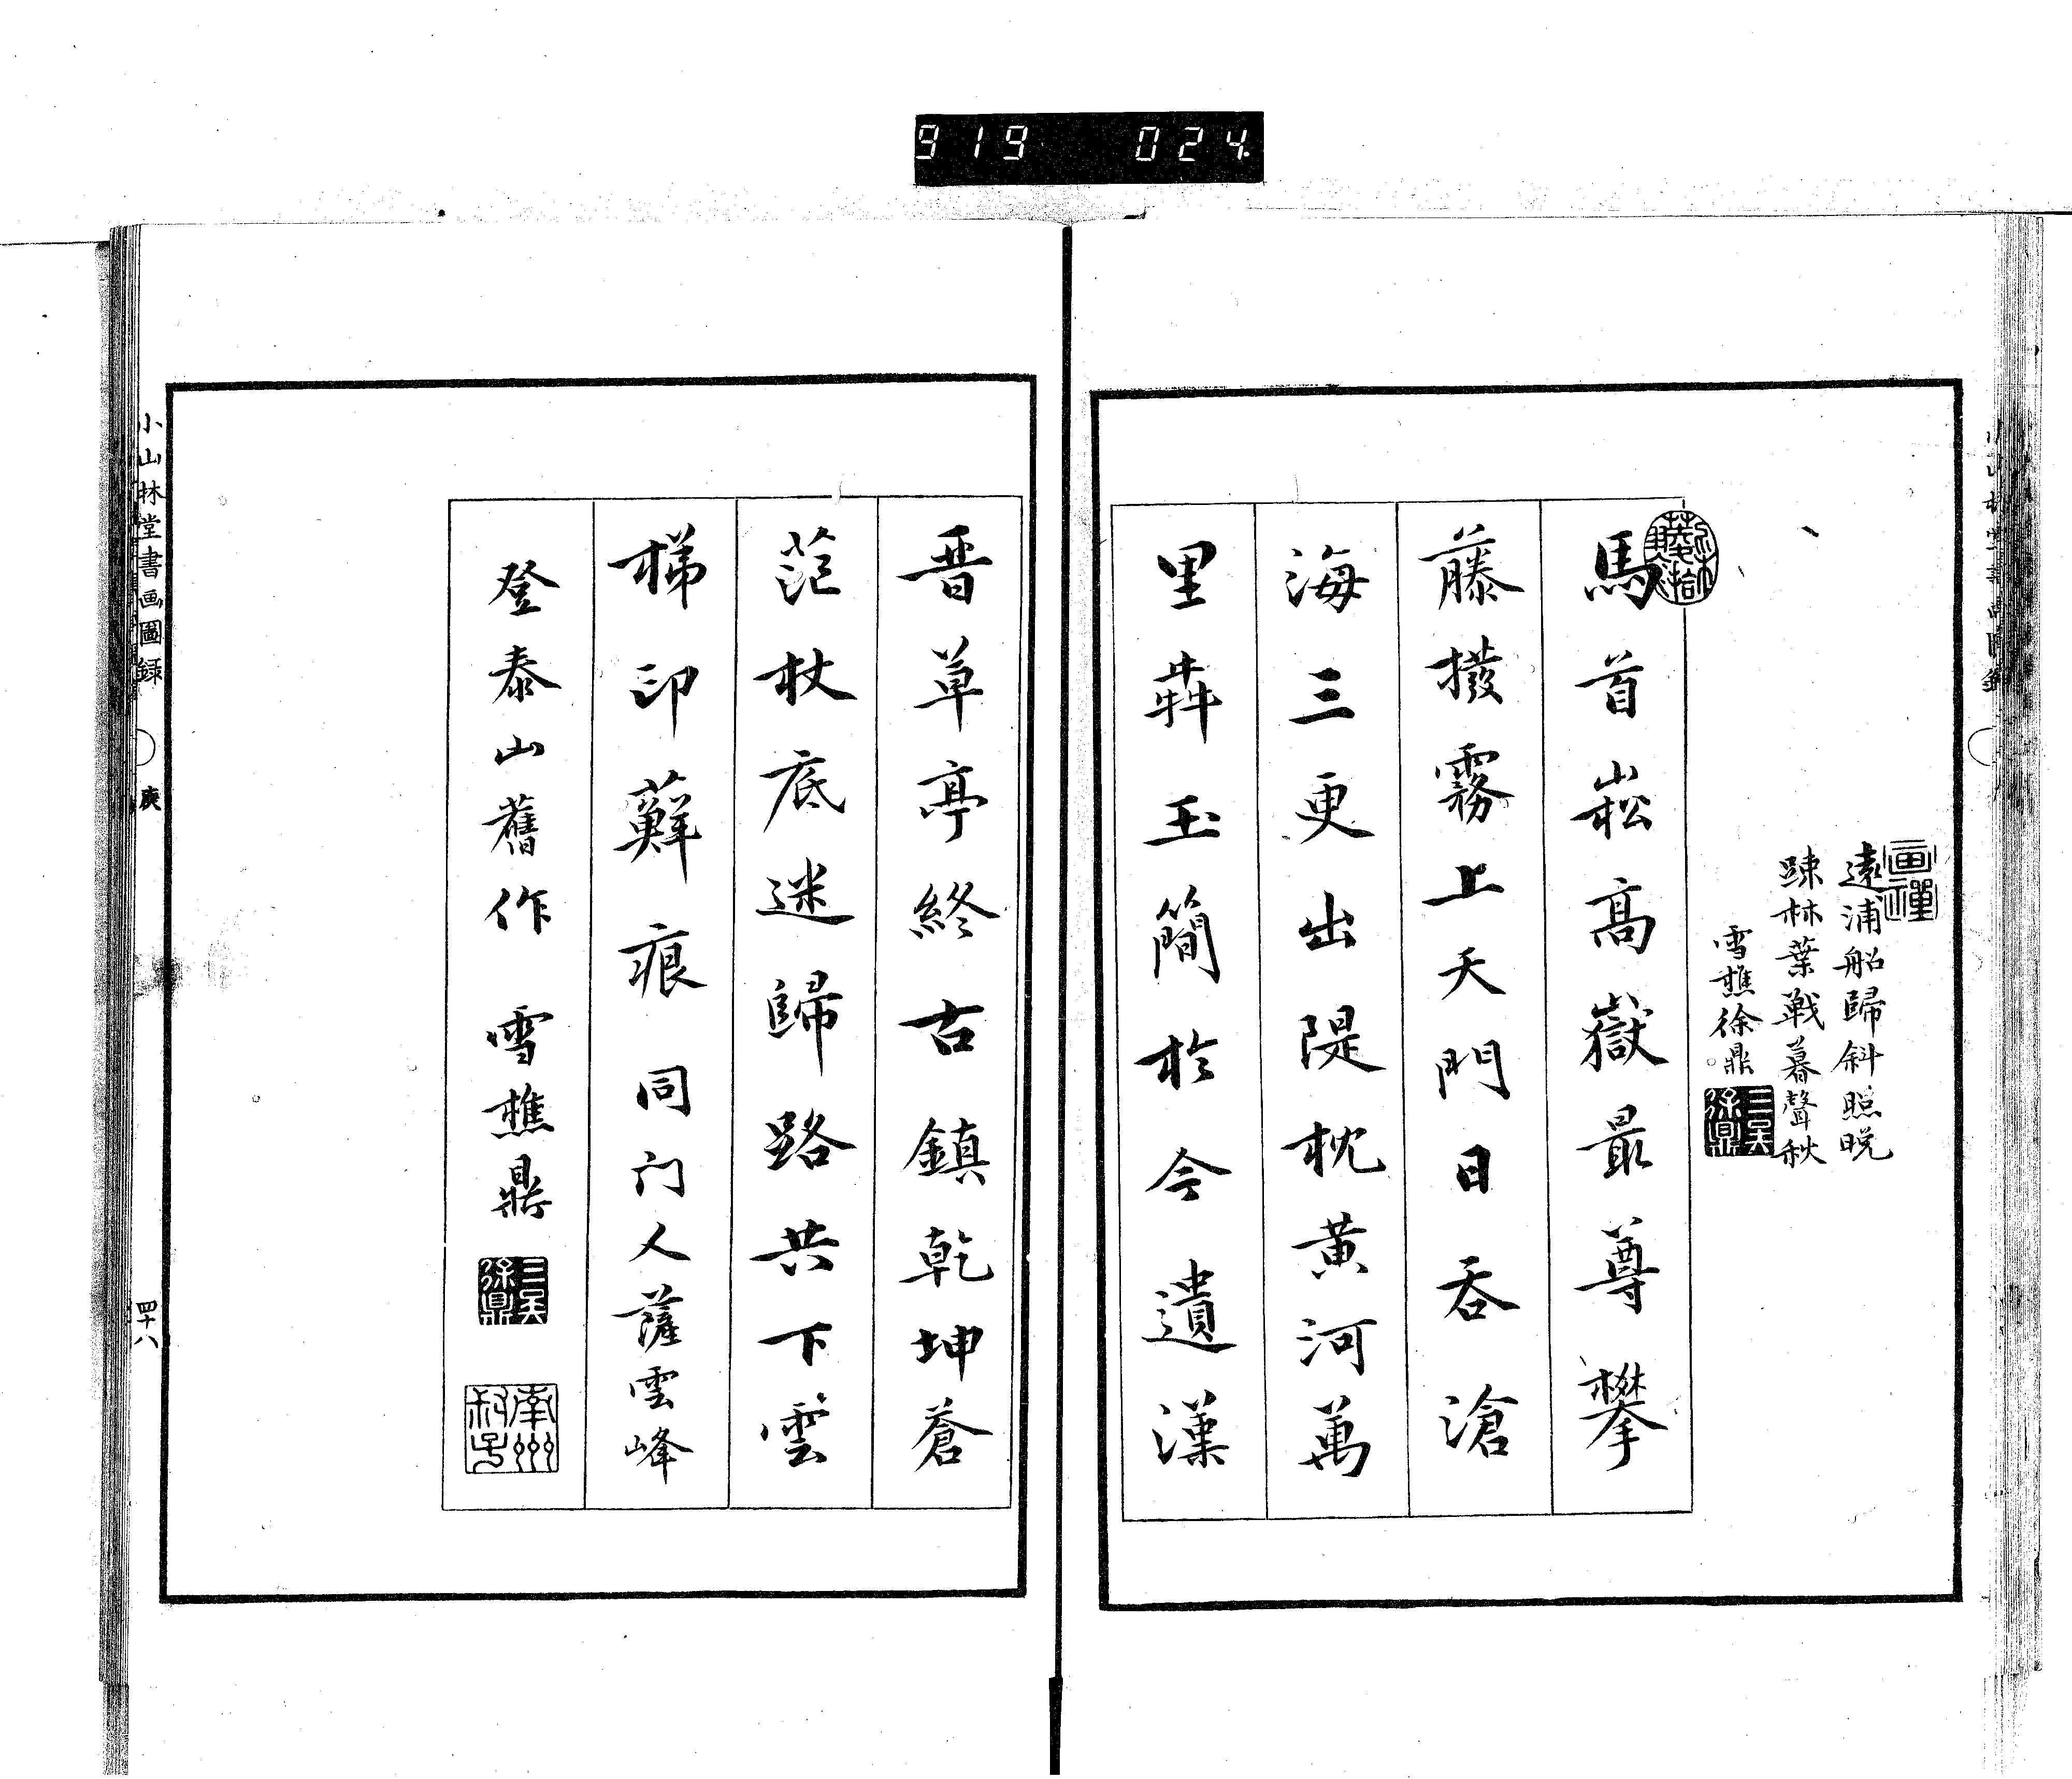 919 024
画禪
遠浦船歸斜照晚
踈林葉戰暮聲秋
雪樵徐鼎
三吴徐鼎
馬首崧高嶽最尊攀
藤撥霧上天門日吞滄
海三更出隄枕黃河萬
里犇玉簡於今遺漢
晋草亭終古鎮乾坤蒼
茫杖底迷歸路共下雲
梯印蘚痕 同门人薩雲峰
登泰山舊作 雪樵鼎
三吴徐鼎
南州
小山林堂書画圖録 庚 四十八